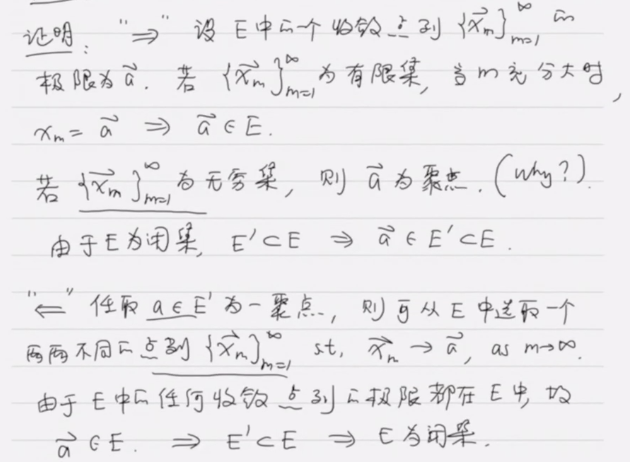 证明: "⇒" 设 E 中的一个收敛点列 {x⃗ₘ}ₘ₌₁^∞ 的
极限为 a⃗. 若 {x⃗ₘ}ₘ₌₁^∞ 为有限集, 当 m 充分大时,
xₘ = a⃗ ⇒ a⃗ ∈ E.
若 {x⃗ₘ}ₘ₌₁^∞ 为无穷集, 则 a⃗ 为聚点. (Why?).
由于 E 为闭集, E' ⊂ E ⇒ a⃗ ∈ E' ⊂ E.
"⇐" 任取 a ∈ E' 为一聚点, 则可从 E 中选取一个
两两不同的点列 {x⃗ₘ}ₘ₌₁^∞ s.t. x⃗ₙ → a⃗, as m→∞.
由于 E 中的任何收敛点列的极限都在 E 中, 故
a⃗ ∈ E. ⇒ E' ⊂ E ⇒ E 为闭集.